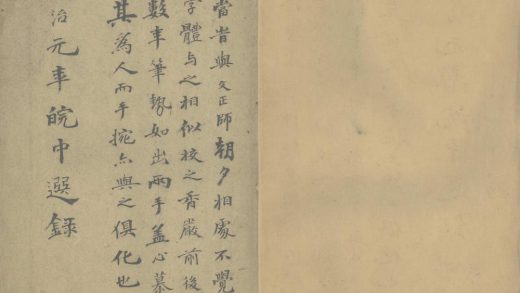 當昔與文正師朝夕相處不覺
字體与之相似校之香嚴前後
數年筆勢如出兩手盖心慕
其為人而手捥亦與之俱化也
治元年皖中選錄